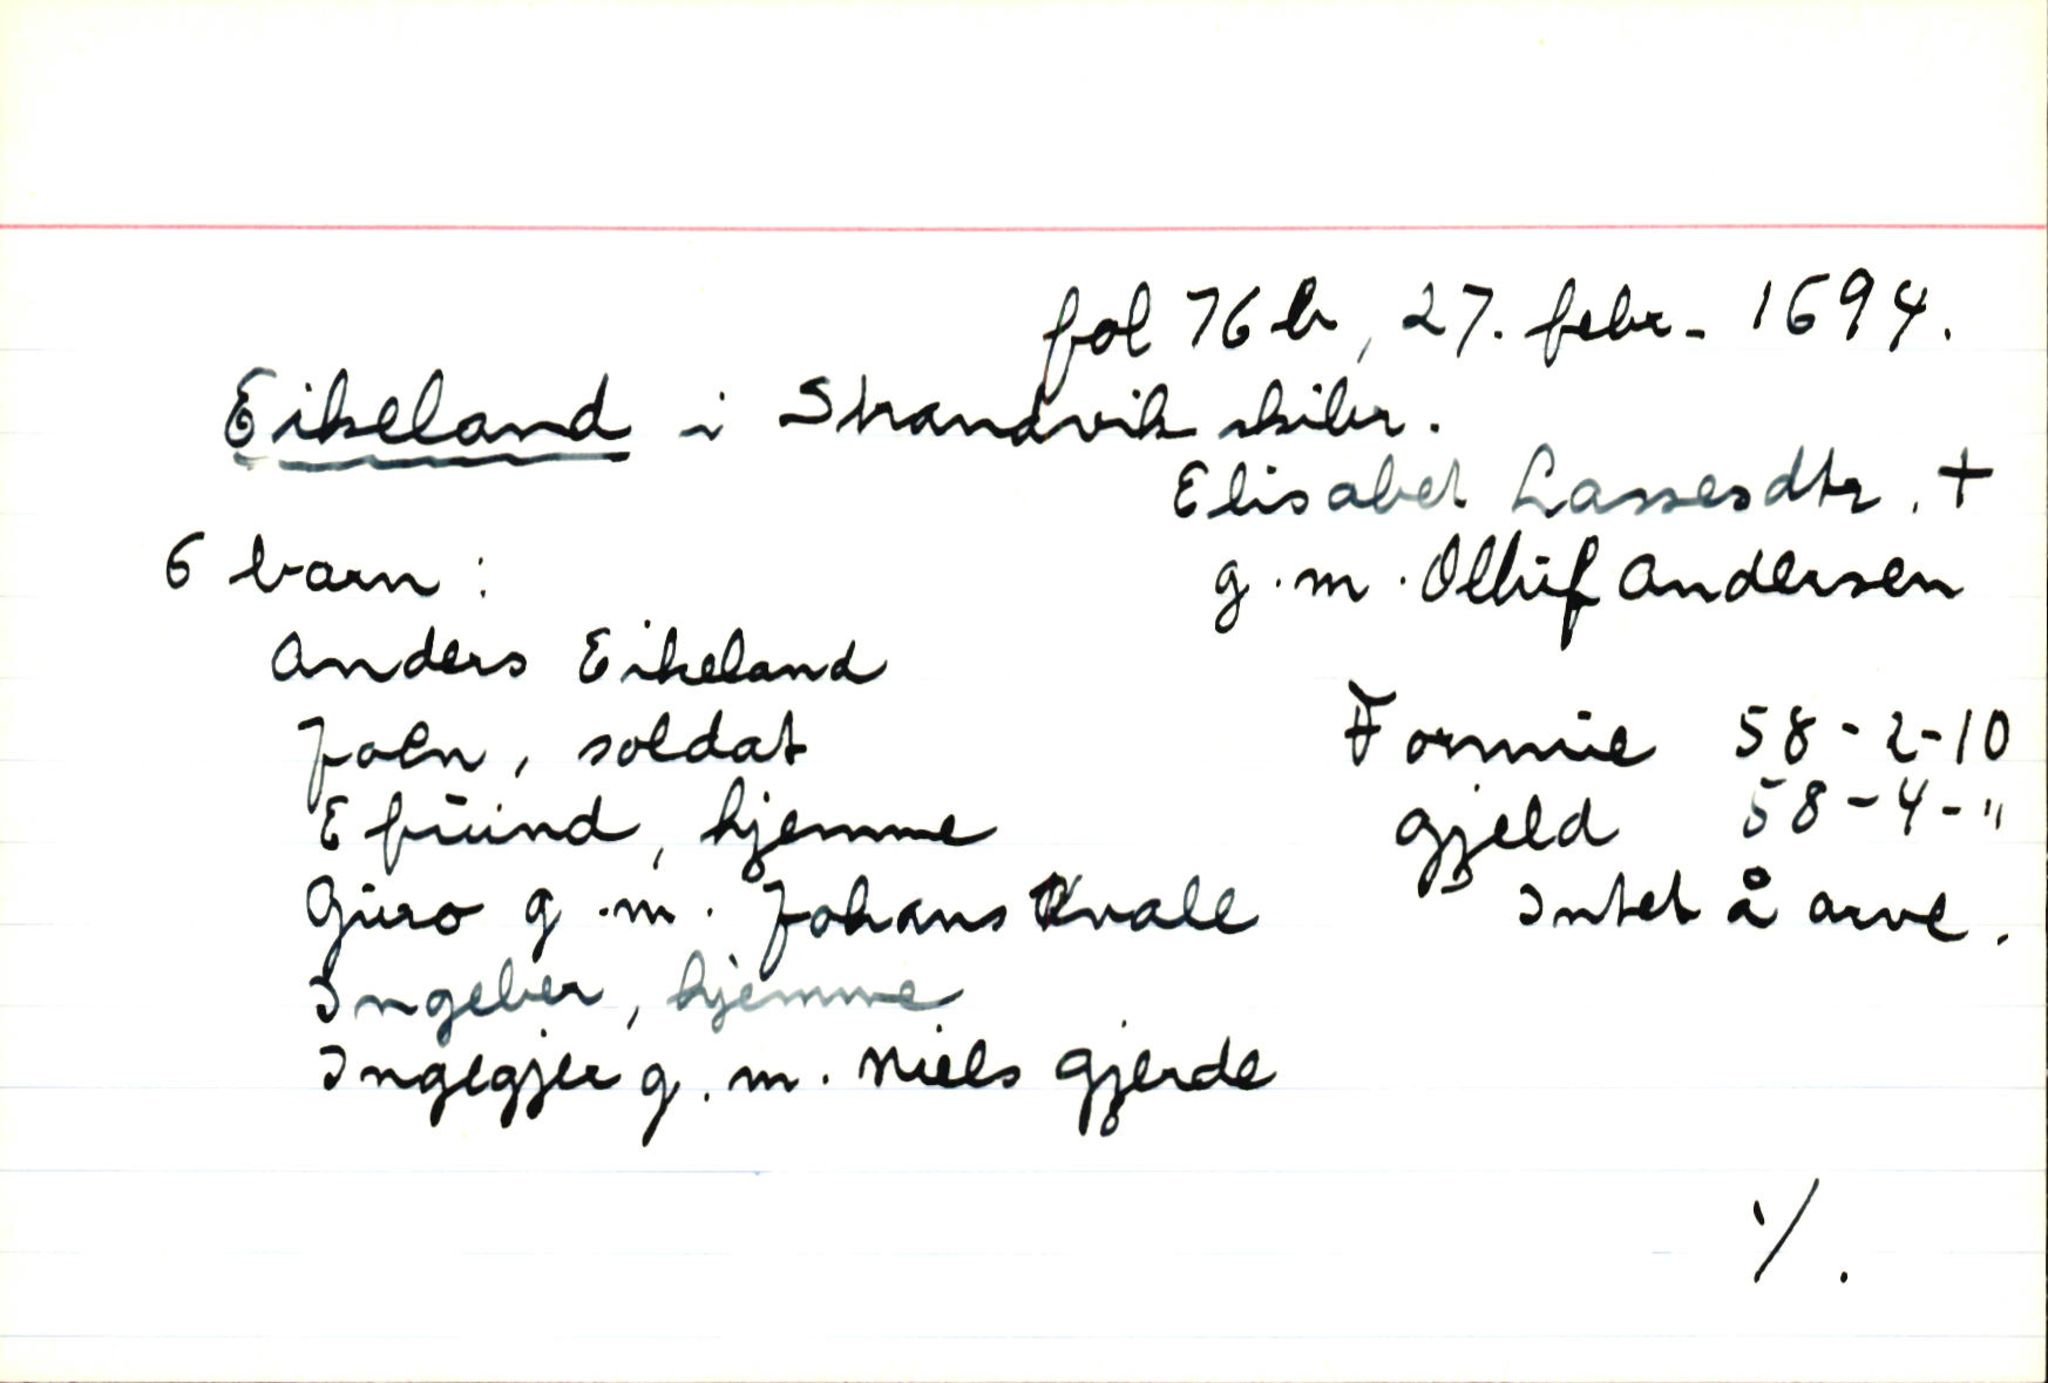 fol 76 b, 27. febr. 1694.
Eikeland i Strandvik skibr.
Elisabet Lassesdtr. +
g.m. Olluf Andersen
6 barn:
Anders Eikeland
Joen, soldat
Efuind, hjemme
Guro g.m. Johans Kvale
Ingeber, hjemme
Ingegjer g.m. Niels Gjerde
Formue 58-2-10
Gjeld 58-4-"
Intet å arve.
./.